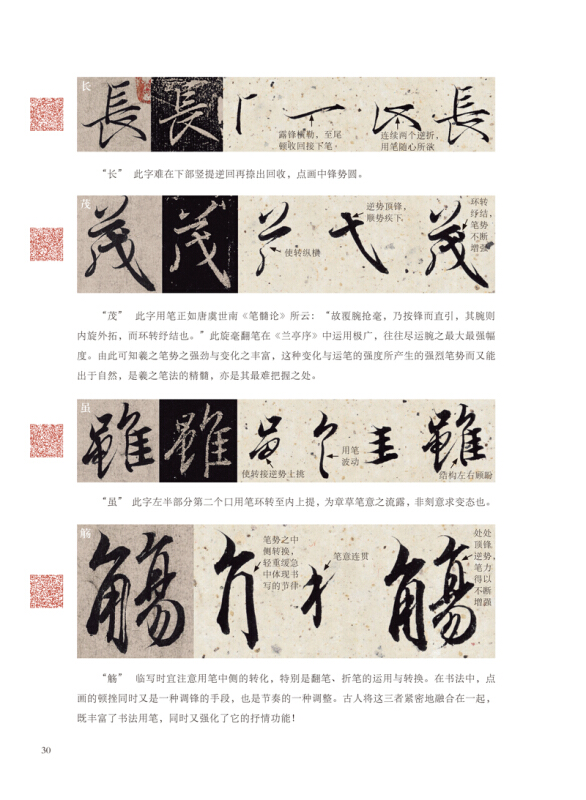 长
長
長
長
露锋横勒，至尾
顿收回接下笔
连续两个逆折，
用笔随心所欲
“长” 此字难在下部竖提逆回再捺出回收，点画中锋势圆。
茂
茂
茂
茂
使转纵横
逆势顶锋，
顺势疾下
环转
纾结，
笔势
不断
增强
“茂” 此字用笔正如唐虞世南《笔髓论》所云：“故覆腕抢毫，乃按锋而直引，其腕则
内旋外拓，而环转纾结也。”此旋毫翻笔在《兰亭序》中运用极广，往往尽运腕之最大最强幅
度。由此可知羲之笔势之强劲与变化之丰富，这种变化与运笔的强度所产生的强烈笔势而又能
出于自然，是羲之笔法的精髓，亦是其最难把握之处。
虽
雖
雖
雖
使转接逆势上挑
用笔
波动
结构左右顾盼
“虽” 此字左半部分第二个口用笔环转至内上提，为章草笔意之流露，非刻意求变态也。
觞
觴
觴
笔势之中
侧转换，
轻重缓急
中体现书
写的节律
笔意连贯
处处
顶锋
逆势，
笔力
得以
不断
增强
“觞” 临写时宜注意用笔中侧的转化，特别是翻笔、折笔的运用与转换。在书法中，点
画的顿挫同时又是一种调锋的手段，也是节奏的一种调整。古人将这三者紧密地融合在一起，
既丰富了书法用笔，同时又强化了它的抒情功能！
30